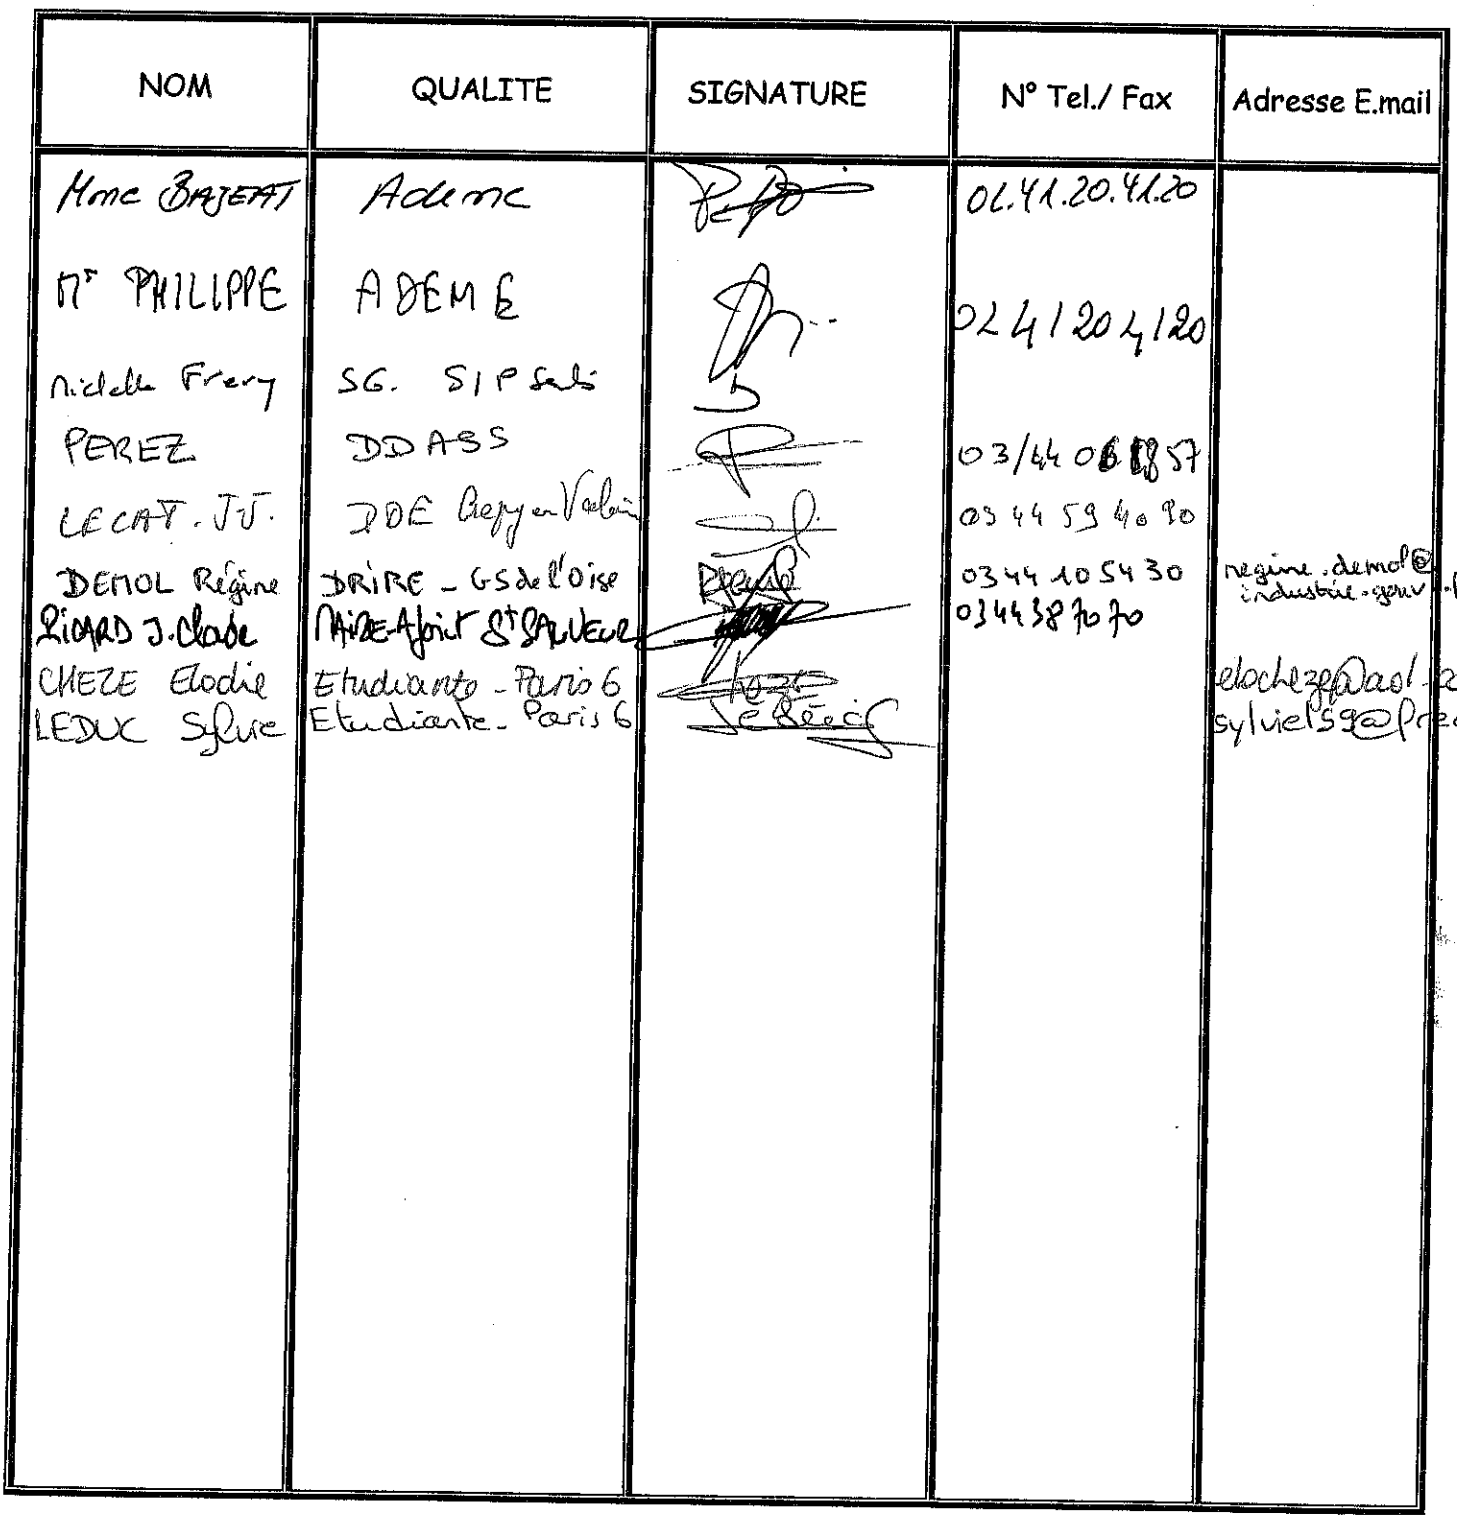 NOM QUALITE SIGNATURE N° Tel./ Fax Adresse E.mail
Mme BAJEAT Ademe 02.41.20.41.20
Mr PHILIPPE ADEME 02 41 20 41 20
Michelle Frery SG. SIP
PEREZ DDASS 03/44 06 57
LECAT. JJ. DDE Crepy en Valois 03 44 59 40 90
DEMOL Régine DRIRE - GS de l'Oise 03 44 10 54 30 regine.demol@
industrie.gouv.f
RICARD J.Claude MAIRE-Adjoint St SAUVEUR 03 44 38 70 70
CHEZE Elodie Etudiante - Paris 6 elocheze@aol.
LEDUC Sylvie Etudiante - Paris 6 sylviel59@free